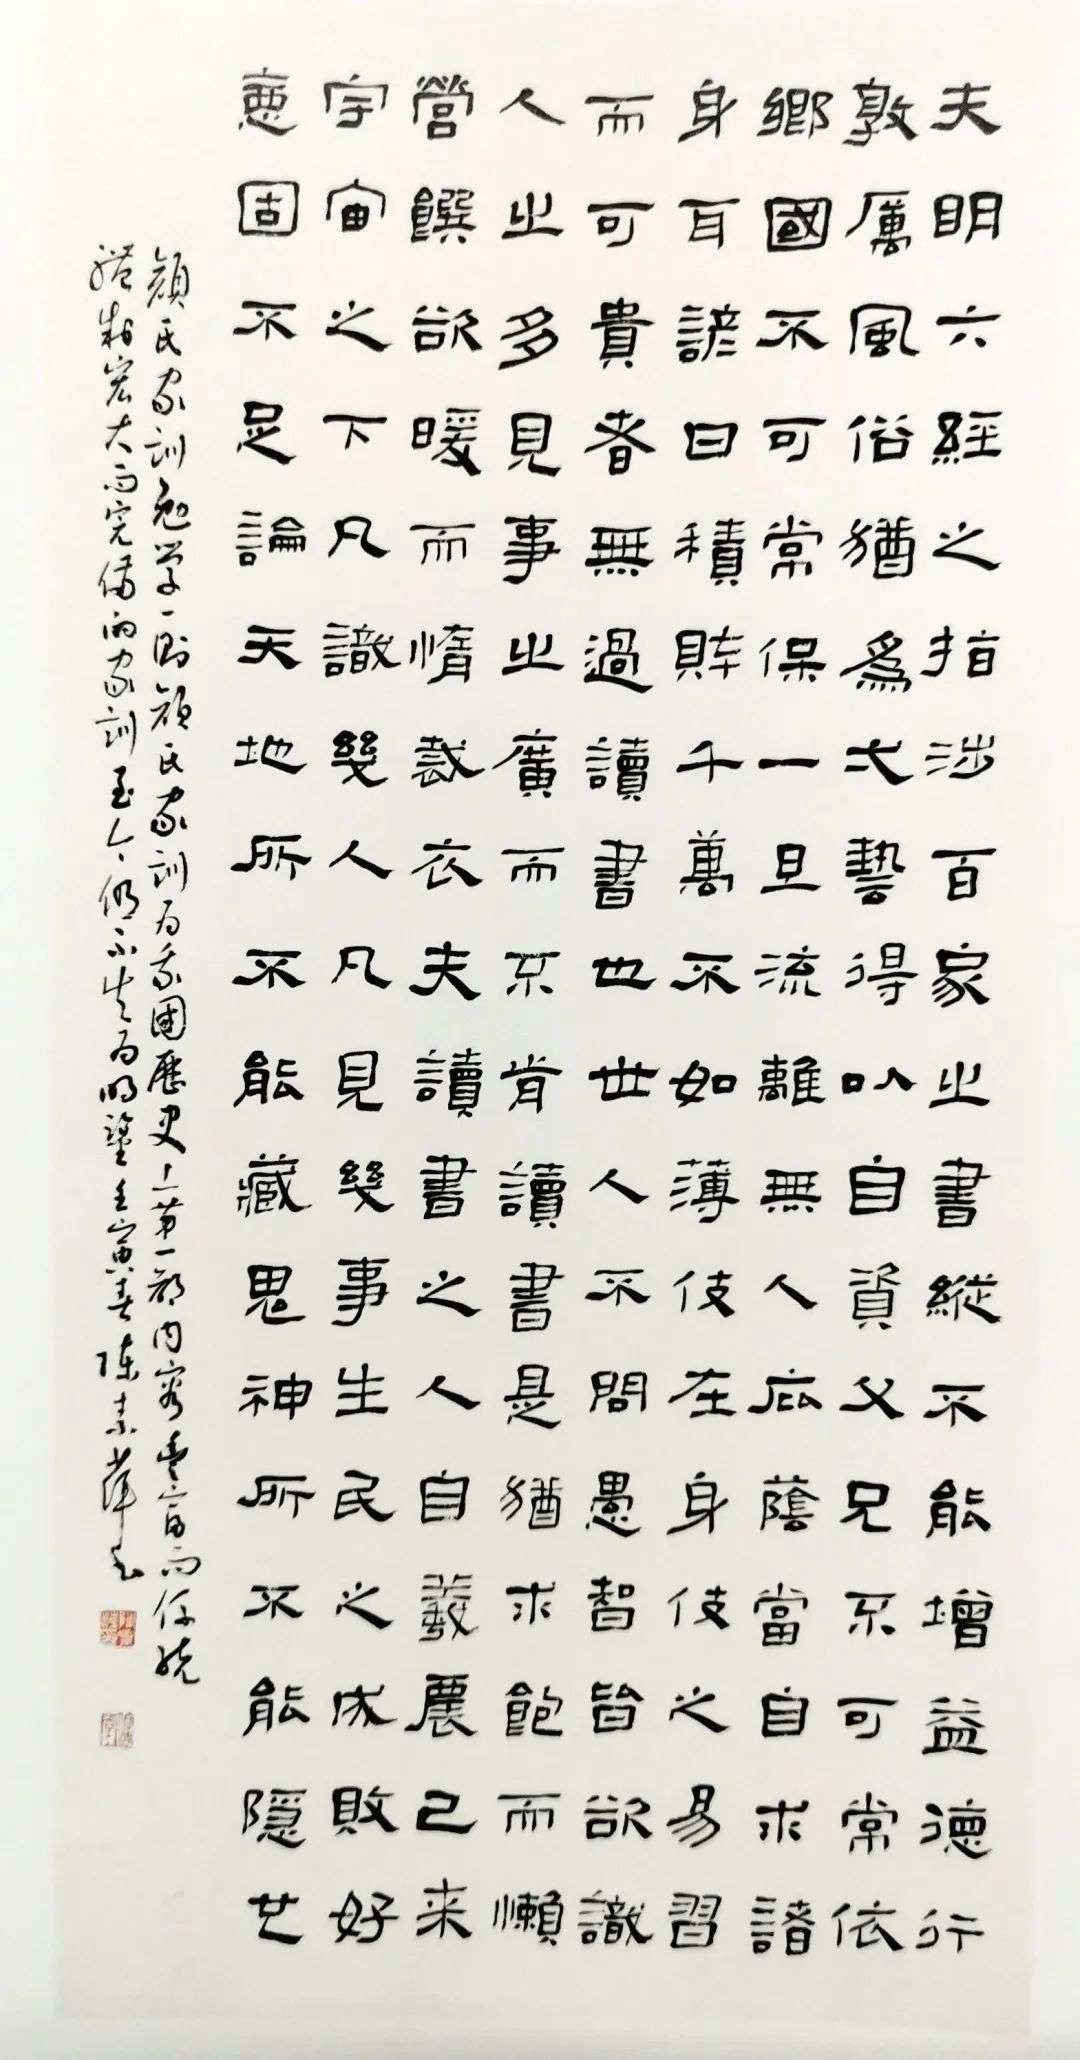 夫明六經之指涉百家之書縱不能增益德行
敦厲風俗猶爲弌藝得以自資父兄不可常依
鄉國不可常保一旦流離無人庇蔭當自求諸
身耳諺曰積財千萬不如薄伎在身伎之易習
而可貴者無過讀書也世人不問愚智皆欲識
人之多見事之廣而不肯讀書是猶求飽而懶
營饌欲暖而惰裁衣夫讀書之人自羲農已来
宇宙之下凡識幾人凡見幾事生民之成敗好
惡固不足論天地所不能藏鬼神所不能隱也
顔氏家訓勉学一則顔氏家訓为我國歷史上第一部内容豐富而係統
體制宏大而完備的家訓至今仍不失为明鑒壬寅春陳素萍書